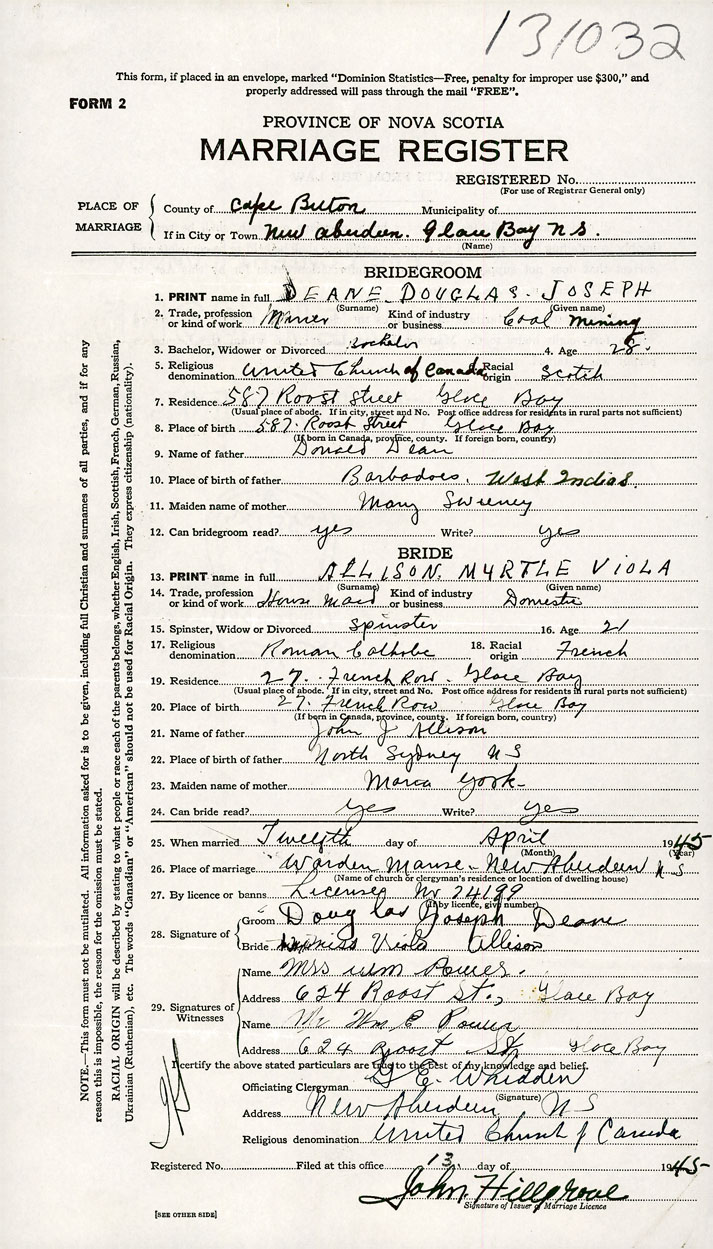 131032
This form, if placed in an envelope, marked "Dominion Statistics—Free, penalty for improper use $300," and
properly addressed will pass through the mail "FREE".
FORM 2
PROVINCE OF NOVA SCOTIA
MARRIAGE REGISTER
REGISTERED No.
(For use of Registrar General only)
PLACE OF MARRIAGE
County of Cape Breton Municipality of
If in City or Town New Aberdeen. Glace Bay N S.
(Name)
BRIDEGROOM
1. PRINT name in full DEANE DOUGLAS. JOSEPH
(Surname) (Given name)
2. Trade, profession or kind of work Miner Kind of industry or business Coal Mining
3. Bachelor, Widower or Divorced Bachelor 4. Age 28.
5. Religious denomination United Church of Canada Racial origin Scotch
7. Residence 587 Roost Street Glace Bay
(Usual place of abode. If in city, street and No. Post office address for residents in rural parts not sufficient)
8. Place of birth 587. Roost Street Glace Bay
(If born in Canada, province, county. If foreign born, country)
9. Name of father Donald Dean
10. Place of birth of father Barbadoes. West Indias.
11. Maiden name of mother Mary Sweeney
12. Can bridegroom read? yes Write? yes
BRIDE
13. PRINT name in full ALLISON. MYRTLE VIOLA
(Surname) (Given name)
14. Trade, profession or kind of work House Maid Kind of industry or business Domestic
15. Spinster, Widow or Divorced Spinster 16. Age 21
17. Religious denomination Roman Catholic 18. Racial origin French
19. Residence 27. French Row. Glace Bay
(Usual place of abode. If in city, street and No. Post office address for residents in rural parts not sufficient)
20. Place of birth 27. French Row Glace Bay
(If born in Canada, province, county. If foreign born, country)
21. Name of father John J Allison
22. Place of birth of father North Sydney N S
23. Maiden name of mother York
24. Can bride read? yes Write? yes
25. When married Twelfth day of April 1945
(Month) (Year)
26. Place of marriage Warden Manse - New Aberdeen N S
(Name of church or clergyman's residence or location of dwelling house)
27. By licence or banns License Nr 74199
(If by licence, give number)
28. Signature of
Groom Douglas Joseph Deane
Bride Viola Allison
29. Signatures of Witnesses
Name Mrs Wm Power.
Address 624 Roost St., Glace Bay
Name Mr Wm E Power
Address 624 Roost St Glace Bay
I certify the above stated particulars are true to the best of my knowledge and belief.
Officiating Clergyman G E. Whidden
(Signature)
Address New Aberdeen N S
Religious denomination United Church of Canada
Registered No. Filed at this office 13. day of 1945
John Hillgrove
Signature of Issuer of Marriage Licence
[SEE OTHER SIDE]
NOTE.—This form must not be mutilated. All information asked for is to be given, including full Christian and surnames of all parties, and if for any
reason this is impossible, the reason for the omission must be stated.
RACIAL ORIGIN will be described by stating to what people or race each of the parents belongs, whether English, Irish, Scottish, French, German, Russian,
Ukrainian (Ruthenian), etc. The words "Canadian" or "American" should not be used for Racial Origin. They express citizenship (nationality).